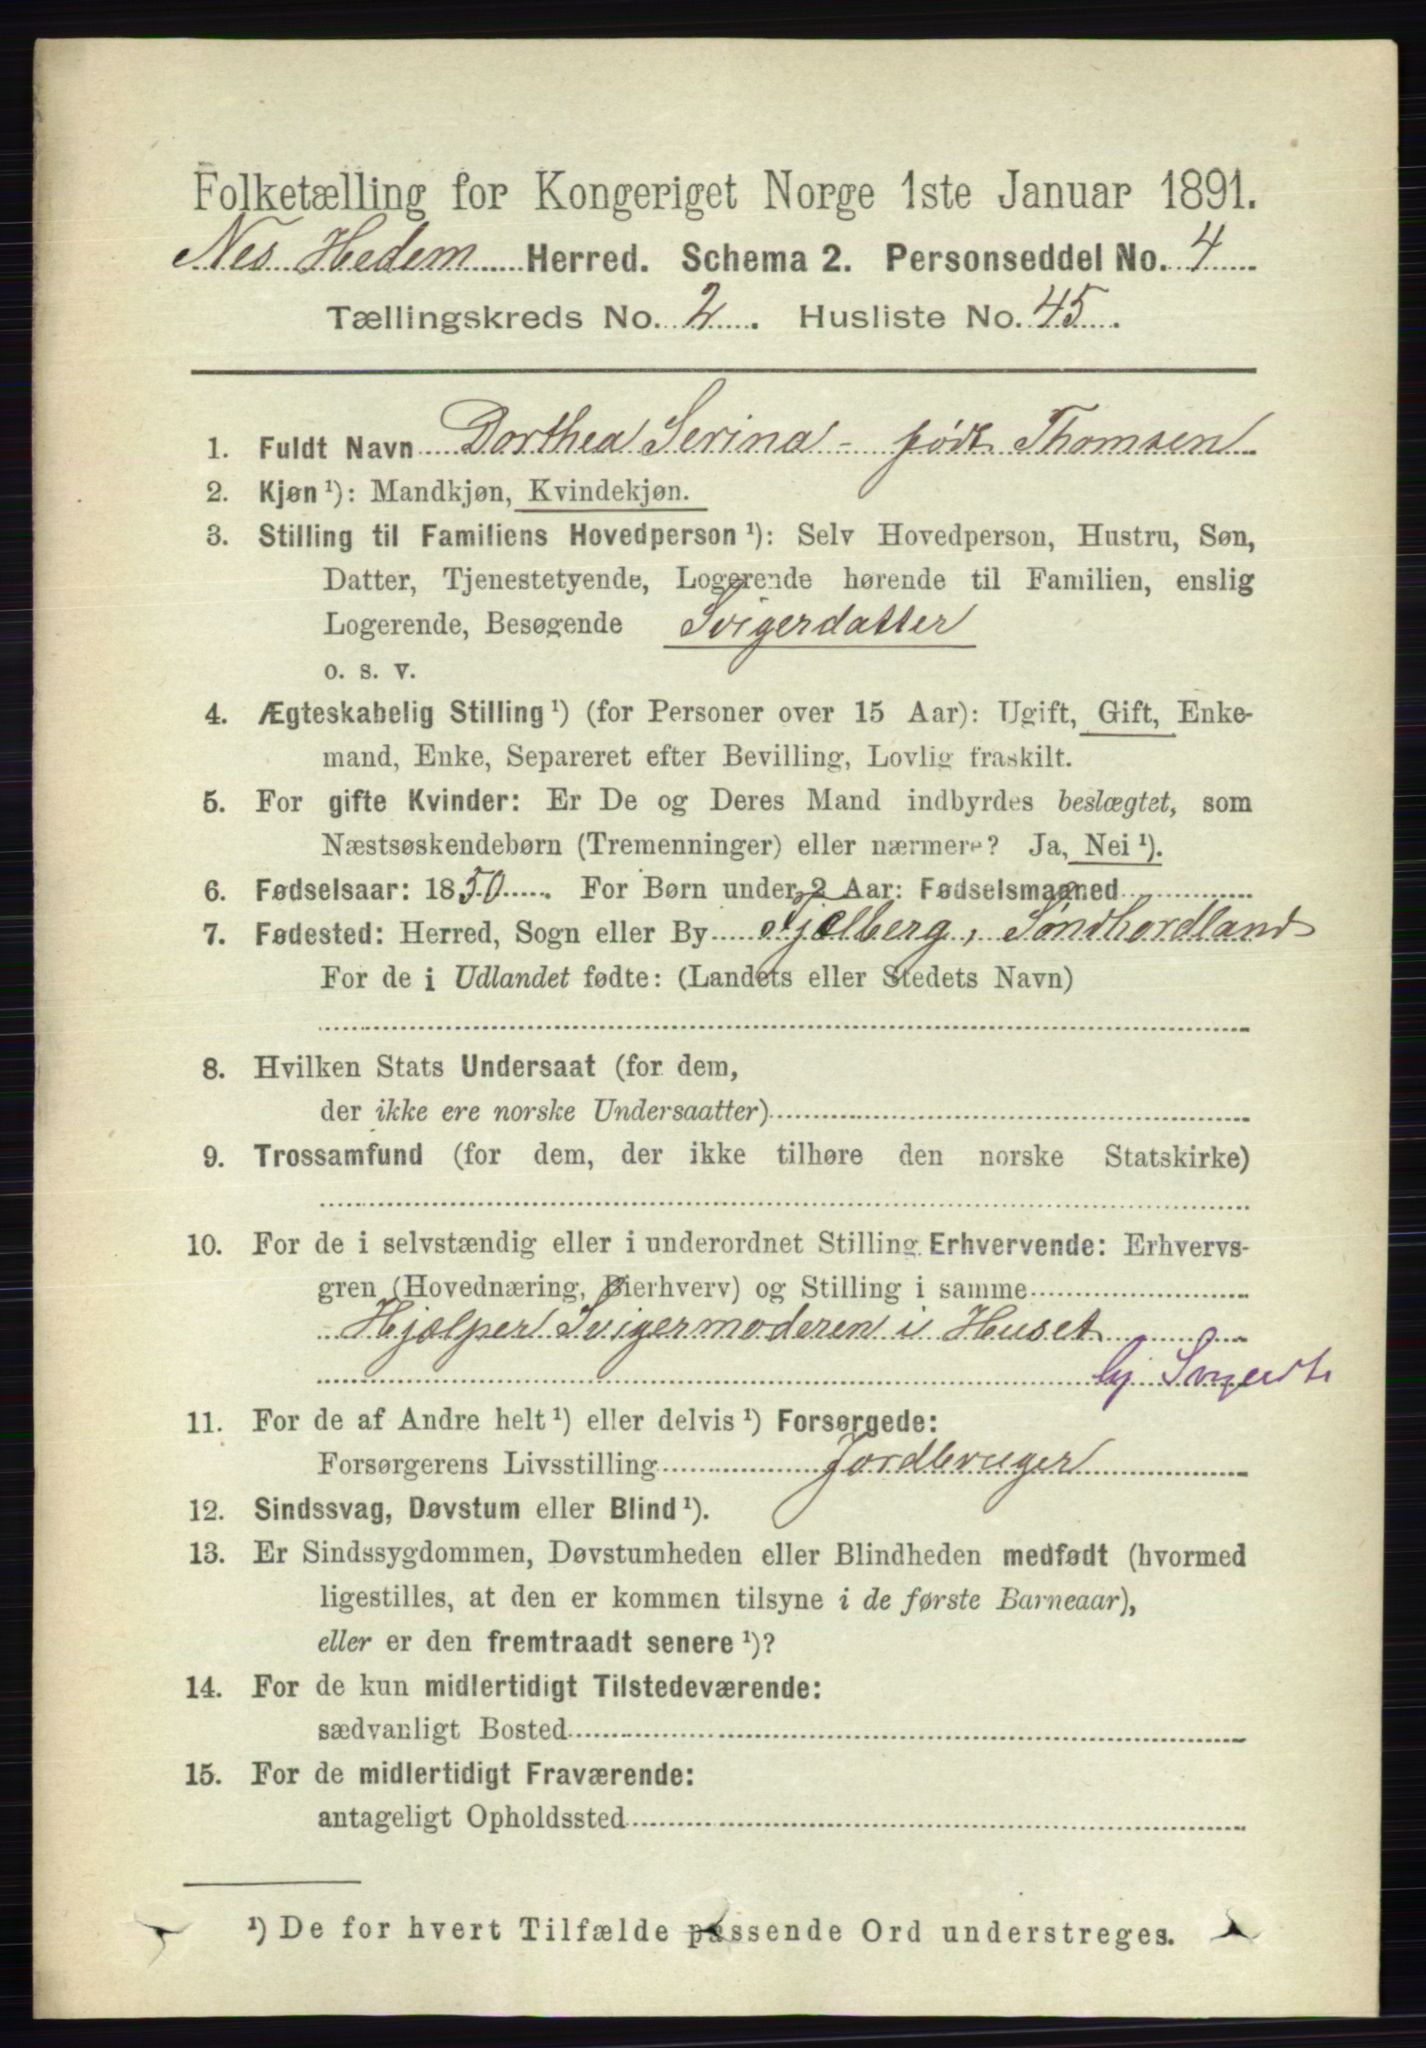 Folketælling for Kongeriget Norge 1ste Januar 1891.
Nes Hedem Herred. Schema 2. Personseddel No. 4
Tællingskreds No. 2. Husliste No. 45.
1. Fuldt Navn Dorthea Serina - født Thomsen
2. Kjøn ¹): Mandkjøn, Kvindekjøn.
3. Stilling til Familiens Hovedperson ¹): Selv Hovedperson, Hustru, Søn,
Datter, Tjenestetyende, Logerende hørende til Familien, enslig
Logerende, Besøgende Svigerdatter
o. s. v.
4. Ægteskabelig Stilling ¹) (for Personer over 15 Aar): Ugift, Gift, Enke-
mand, Enke, Separeret efter Bevilling, Lovlig fraskilt.
5. For gifte Kvinder: Er De og Deres Mand indbyrdes beslægtet, som
Næstsøskendebørn (Tremenninger) eller nærmere? Ja, Nei ¹).
6. Fødselsaar: 1850. For Børn under 2 Aar: Fødselsmaaned
7. Fødested: Herred, Sogn eller By Fjelberg, Søndhordland
For de i Udlandet fødte: (Landets eller Stedets Navn)
8. Hvilken Stats Undersaat (for dem,
der ikke ere norske Undersaatter)
9. Trossamfund (for dem, der ikke tilhøre den norske Statskirke)
10. For de i selvstændig eller i underordnet Stilling Erhvervende: Erhvervs-
gren (Hovednæring, Bierhverv) og Stilling i samme
Hjælper Svigermoderen i Huset
11. For de af Andre helt ¹) eller delvis ¹) Forsørgede:
Forsørgerens Livsstilling Jordbruger
12. Sindssvag, Døvstum eller Blind ¹).
13. Er Sindssygdommen, Døvstumheden eller Blindheden medfødt (hvormed
ligestilles, at den er kommen tilsyne i de første Barneaar),
eller er den fremtraadt senere ¹)?
14. For de kun midlertidigt Tilstedeværende:
sædvanligt Bosted
15. For de midlertidigt Fraværende:
antageligt Opholdssted
¹) De for hvert Tilfælde passende Ord understreges.